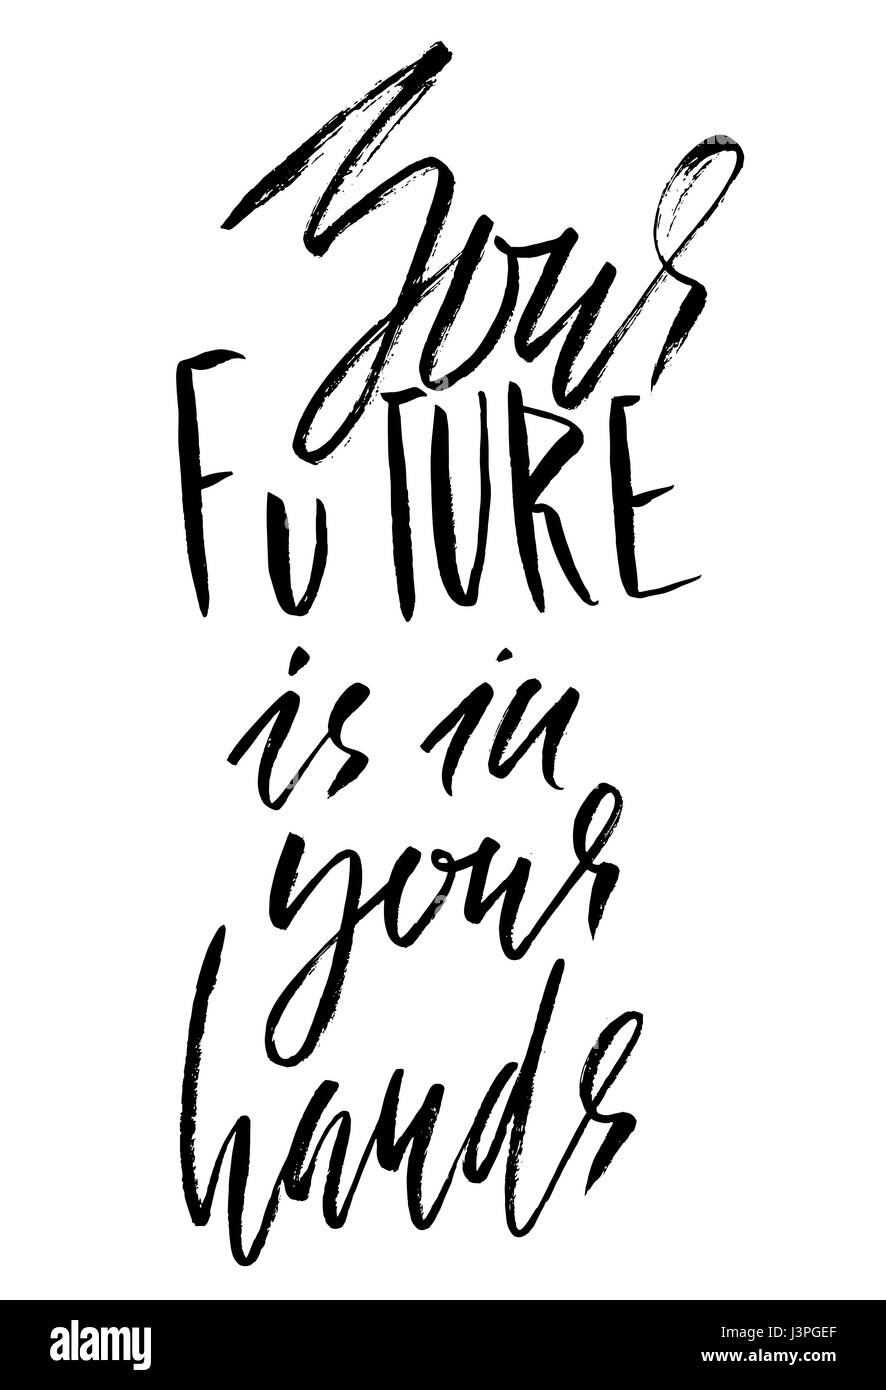 Your
FuTURE
is in
your
hands
alamy
Image ID: J3PGEF
www.alamy.com